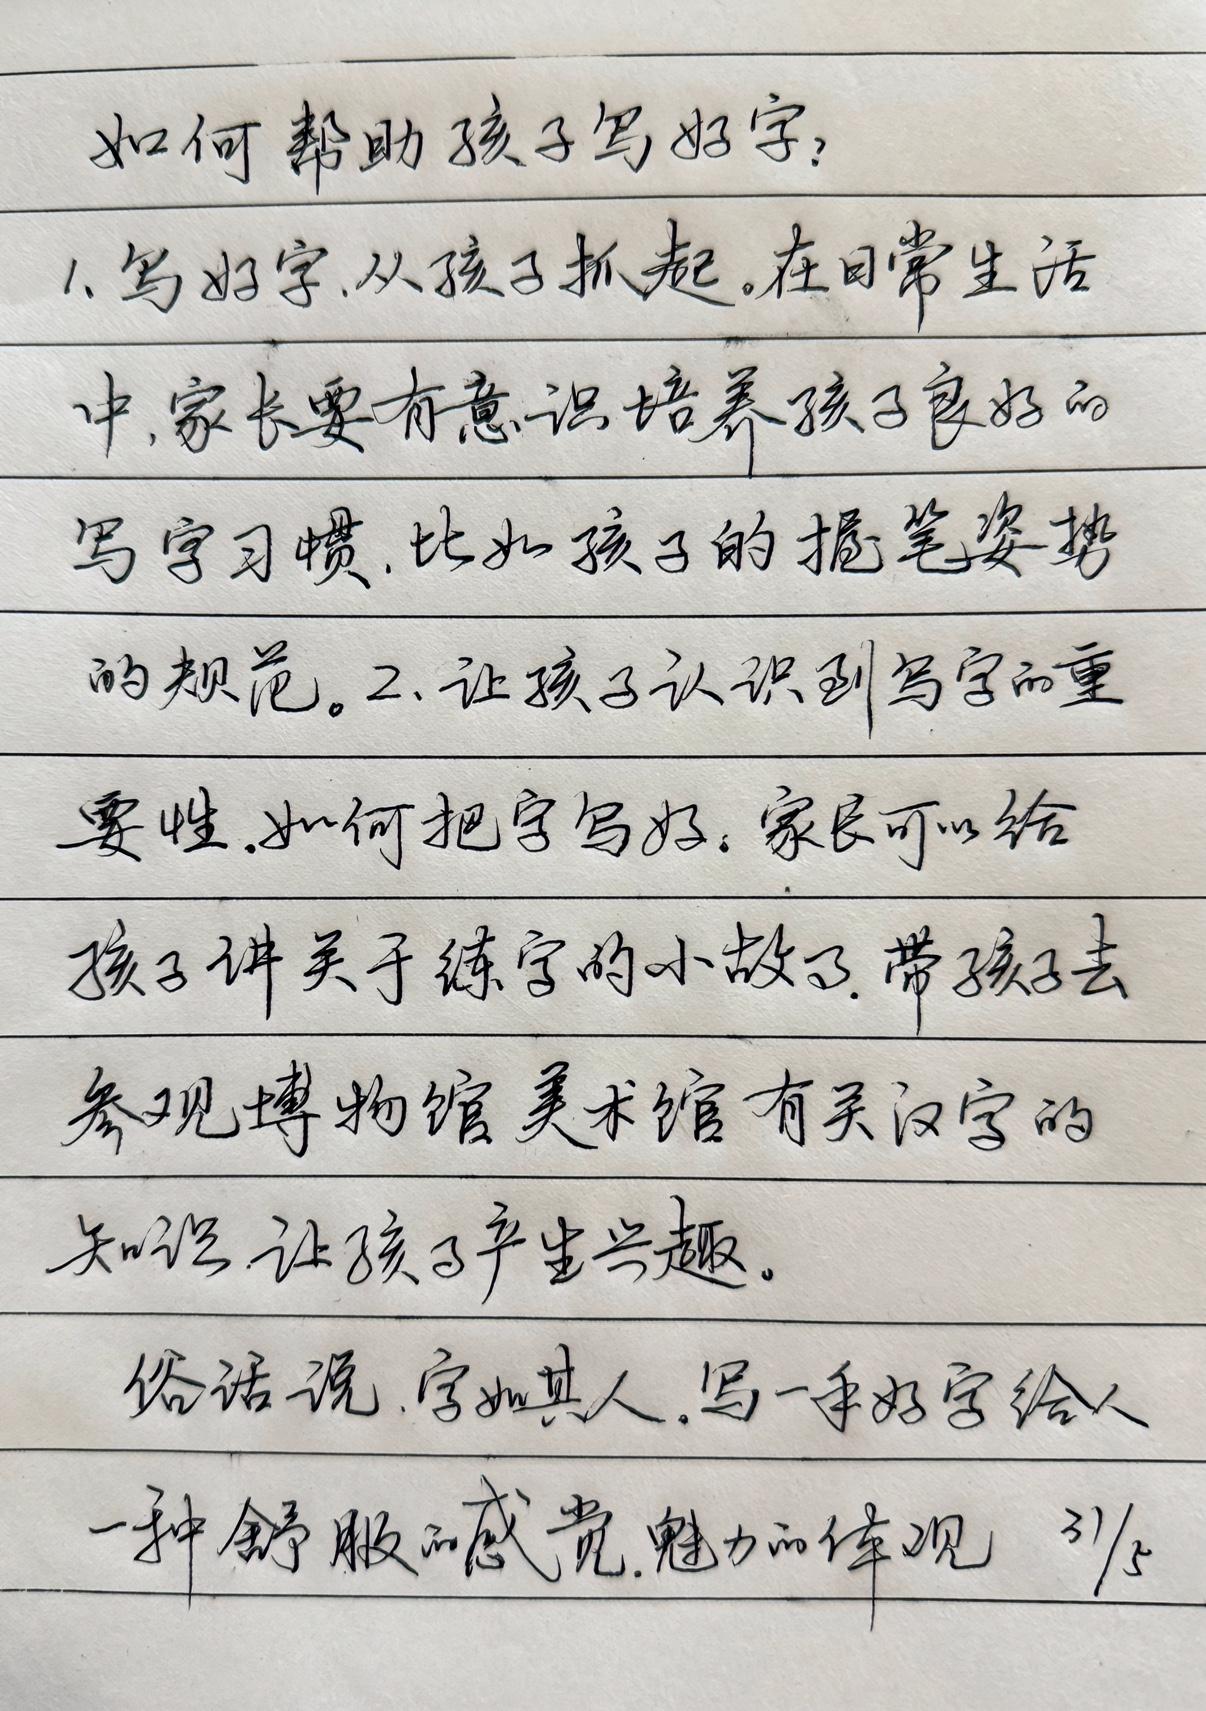 如何帮助孩子写好字?
1、写好字,从孩子抓起。在日常生活
中,家长要有意识培养孩子良好的
写字习惯,比如孩子的握笔姿势
的规范。2、让孩子认识到写字的重
要性,如何把字写好。家长可以给
孩子讲关于练字的小故事,带孩子去
参观博物馆美术馆有关汉字的
知识,让孩子产生兴趣。
俗话说,字如其人,写一手好字给人
一种舒服的感觉,魅力的体现 31/5